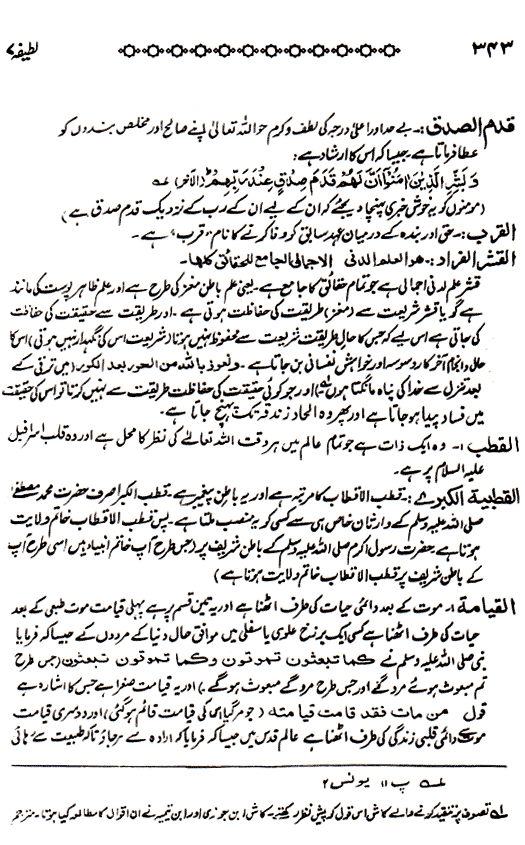 ۳۴۳ لطیفہ ۷
قدم الصدق :۔ بے حد اور اعلیٰ درجہ کی لطف و کرم حق اللہ تعالیٰ اپنے صالح اور مخلص بندوں کو
عطا فرماتا ہے۔ جیسا کہ اس کا ارشاد ہے :
وَبَشِّرِ الَّذِیْنَ اٰمَنُوْٓا اَنَّ لَهُمْ قَدَمَ صِدْقٍ عِنْدَ رَبِّهِمْ (الآخر) لے
(مومنوں کو یہ خوش خبری پہنچا دیجئے کہ ان کے لیے ان کے رب کے نزدیک قدم صدق ہے)
القرب :۔ حق اور بندہ کے درمیان عہد سابق کو وفا کرنے کا نام "قرب" ہے۔
القشر الفراد :۔ هو العلم الدنی الاجمالی الجامع للحقائق کلها۔
قشر علم لدنی اجمالی ہے جو تمام حقائق کا جامع ہے۔ یعنی علم باطن مغز کی طرح ہے اور علم ظاہر پوست کی مانند
ہے گویا قشر شریعت سے (مغز) طریقت کی حفاظت ہوتی ہے۔ اور طریقت سے حقیقت کی حفاظت
کی جاتی ہے اس لیے کہ جس کا حال طریقت شریعت سے محفوظ نہیں ہوتا (شریعت اس کی نگہدار نہیں ہوتی) اس کا
حال و انجام آخر کار وسوسہ اور خواہش نفسانی بن جاتا ہے۔ ونعوذ باللہ من الحور بعد الکور (میں ترقی کے
بعد تنزل سے خدا کی پناہ مانگتا ہوں) اور جو کوئی حقیقت کی حفاظت طریقت سے نہیں کرتا تو اس کی حقیقت
میں فساد پیدا ہو جاتا ہے اور پھر وہ الحاد زندقہ تک پہنچ جاتا ہے۔
القطب :۔ وہ ایک ذات ہے جو تمام عالم میں ہر وقت اللہ تعالیٰ کی نظر کا محل ہے اور وہ قلب اسرافیل
علیہ السلام پر ہے۔
القطبية الکبرے :۔ قطب الاقطاب کا مرتبہ ہے اور یہ باطن پیغمبر ہے۔ قطب الکبرا صرف حضرت محمد مصطفےٰ
صلی اللہ علیہ وسلم کے وارثان خاص ہی سے کسی کو یہ منصب ملتا ہے۔ پس قطب الاقطاب خاتم ولایت
ہوتا ہے حضرت رسول اکرم صلی اللہ علیہ وسلم کے باطن شریف پر (جس طرح آپ خاتم انبیاء ہیں اسی طرح آپ
کے باطن شریف پر قطب الاقطاب خاتم ولایت ہوتا ہے)
القیامة :۔ موت کے بعد دائمی حیات کی طرف اٹھنا ہے اور یہ تین قسم پر ہے پہلی قیامت موت طبعی کے بعد
حیات کی طرف اٹھنا ہے کسی ایک برزخ علوی یا سفلی میں موافق حال دنیا کے مردوں کے جیسا کہ فرمایا
نبی صلی اللہ علیہ وسلم نے کما تبعثون تموتون وکما تموتون تبعثون (جس طرح
تم مبعوث ہوئے مرو گے اور جس طرح مرو گے مبعوث ہو گے۔) اور یہ قیامت صغرا ہے جس کا اشارہ ہے
قول من مات فقد قامت قیامته (جو مر گیا اس کی قیامت قائم ہو گئی) اور دوسری قیامت
موت دائمی قلبی زندگی کی طرف اٹھنا ہے عالم قدس میں جیسا کہ فرمایا کہ ارادہ سے مر جاؤ تاکہ طبیعت سے رہائی
لے پ ۱۱ یونس ۲
لے تصوف پر تنقید کرنے والے کاش اس قول کو پیش نظر رکھتے۔ کاش ابن جوزی اور ابن تیمیہ نے ان اقوال کا مطالعہ کیا ہوتا۔ مترجم